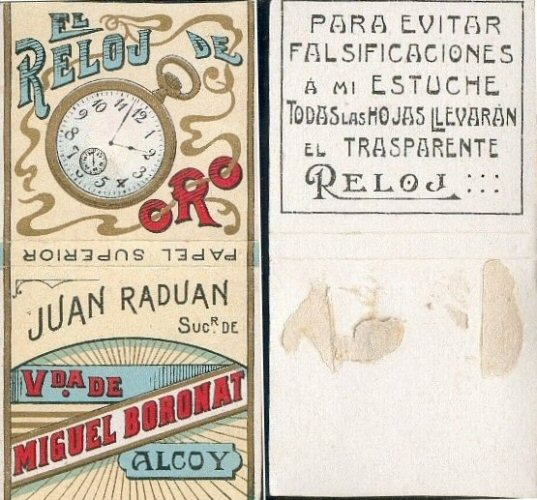 EL
RELOJ DE
ORO
PAPEL SUPERIOR
JUAN RADUAN
SUCR. DE
VDA. DE
MIGUEL BORONAT
ALCOY
PARA EVITAR
FALSIFICACIONES
Á MI ESTUCHE
TODAS LAS HOJAS LLEVARÁN
EL TRASPARENTE
RELOJ :::